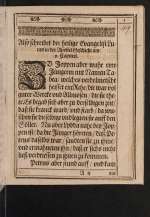 Also schreibet der heilige Evangelist Lu-
cas in der Apostel Geschichte am
9. Capittel.
ZU Joppen aber ware ein
Jüngerin mit Namen Ta-
bea, welches verdolmetschet
heist ein Rehe, die war vol
guter Wercke und Almosen, die sie that.
Es begab sich aber zu derselbigen zeit,
daß sie kranck ward, und starb, da wu-
schen sie dieselbige und legten sie auff den
Söller. Nu aber Lydda nahe bey Jop-
pen ist, da die Jünger höreten, daß Pe-
trus daselbs war, sandten sie
zu ihm, und ermaneten ihn, daß er sichs nicht
ließ verdriessen zu ihnen zu kommen.
Petrus aber stund auff, und kam
A ij